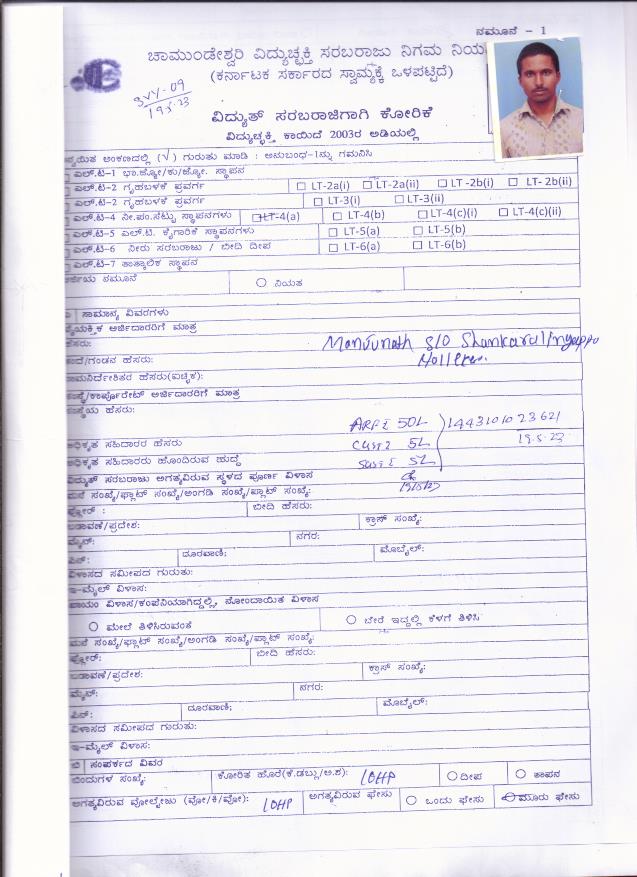 ನಮೂನೆ - 1
ಚಾಮುಂಡೇಶ್ವರಿ ವಿದ್ಯುಚ್ಛಕ್ತಿ ಸರಬರಾಜು ನಿಗಮ ನಿಯ
(ಕರ್ನಾಟಕ ಸರ್ಕಾರದ ಸ್ವಾಮ್ಯಕ್ಕೆ ಒಳಪಟ್ಟಿದೆ)
19.5.23
ವಿದ್ಯುತ್ ಸರಬರಾಜಿಗಾಗಿ ಕೋರಿಕೆ
ವಿದ್ಯುಚ್ಛಕ್ತಿ ಕಾಯಿದೆ 2003ರ ಅಡಿಯಲ್ಲಿ
ಅಂಕಣದಲ್ಲಿ (√) ಗುರುತು ಮಾಡಿ : ಅನುಬಂಧ-1ನ್ನು ಗಮನಿಸಿ
ಎಲ್.ಟಿ-1 ಭಾ.ಜ್ಯೋ/ಕು/ಜ್ಯೋ. ಸ್ಥಾಪನ
ಎಲ್.ಟಿ-2 ಗೃಹಬಳಕೆ ಪ್ರವರ್ಗ LT-2a(i) LT-2a(ii) LT -2b(i) LT- 2b(ii)
ಎಲ್.ಟಿ-2 ಗೃಹಬಳಕೆ ಪ್ರವರ್ಗ LT-3(i) LT-3(ii)
ಎಲ್.ಟಿ-4 ನೀ.ಪಂ.ಸೆಟ್ಟು ಸ್ಥಾಪನಗಳು LT-4(a) LT-4(b) LT-4(c)(i) LT-4(c)(ii)
ಎಲ್.ಟಿ-5 ಎಲ್.ಟಿ. ಕೈಗಾರಿಕೆ ಸ್ಥಾಪನಗಳು LT-5(a) LT-5(b)
ಎಲ್.ಟಿ-6 ನೀರು ಸರಬರಾಜು / ಬೀದಿ ದೀಪ LT-6(a) LT-6(b)
ಎಲ್.ಟಿ-7 ತಾತ್ಕಾಲಿಕ ಸ್ಥಾಪನ
ನಮೂನೆ ನಿಯತ
ಸಾಮಾನ್ಯ ವಿವರಗಳು
ಅರ್ಜಿದಾರರಿಗೆ ಮಾತ್ರ
ಹೆಸರು: Manjunath S/O Shankaralingappa
ತಂದೆ/ಗಂಡನ ಹೆಸರು:
ನಾಮನಿರ್ದೇಶಿತರ ಹೆಸರು(ಐಚ್ಛಿಕ):
ಸಂಸ್ಥೆ/ಕಾರ್ಪೊರೇಟ್ ಅರ್ಜಿದಾರರಿಗೆ ಮಾತ್ರ
ಸಂಸ್ಥೆಯ ಹೆಸರು:
50L 14431010 23621
ಅಧಿಕೃತ ಸಹಿದಾರರ ಹೆಸರು 5L 19.5.23
ಅಧಿಕೃತ ಸಹಿದಾರರು ಹೊಂದಿರುವ ಹುದ್ದೆ 5L
ವಿದ್ಯುತ್ ಸರಬರಾಜು ಅಗತ್ಯವಿರುವ ಸ್ಥಳದ ಪೂರ್ಣ ವಿಳಾಸ
ಮನೆ ಸಂಖ್ಯೆ/ಫ್ಲಾಟ್ ಸಂಖ್ಯೆ/ಅಂಗಡಿ ಸಂಖ್ಯೆ/ಪ್ಲಾಟ್ ಸಂಖ್ಯೆ:
ಫ್ಲೋರ್ : ಬೀದಿ ಹೆಸರು:
ಬಡಾವಣೆ/ಪ್ರದೇಶ: ಕ್ರಾಸ್ ಸಂಖ್ಯೆ:
ಮೈನ್: ನಗರ:
ಪಿನ್: ದೂರವಾಣಿ: ಮೊಬೈಲ್:
ವಿಳಾಸದ ಸಮೀಪದ ಗುರುತು:
ಇ-ಮೈಲ್ ವಿಳಾಸ:
ಖಾಯಂ ವಿಳಾಸ/ಕಂಪೆನಿಯಾಗಿದ್ದಲ್ಲಿ, ನೋಂದಾಯಿತ ವಿಳಾಸ
ಮೇಲೆ ತಿಳಿಸಿರುವಂತೆ ಬೇರೆ ಇದ್ದಲ್ಲಿ ಕೆಳಗೆ ತಿಳಿಸಿ
ಮನೆ ಸಂಖ್ಯೆ/ಫ್ಲಾಟ್ ಸಂಖ್ಯೆ/ಅಂಗಡಿ ಸಂಖ್ಯೆ/ಪ್ಲಾಟ್ ಸಂಖ್ಯೆ:
ಫ್ಲೋರ್: ಬೀದಿ ಹೆಸರು:
ಬಡಾವಣೆ/ಪ್ರದೇಶ: ಕ್ರಾಸ್ ಸಂಖ್ಯೆ:
ಮೈನ್: ನಗರ:
ಪಿನ್: ದೂರವಾಣಿ: ಮೊಬೈಲ್:
ವಿಳಾಸದ ಸಮೀಪದ ಗುರುತು:
ಇ-ಮೈಲ್ ವಿಳಾಸ:
ಬಿ ಸಂಪರ್ಕದ ವಿವರ
ಬಿಂದುಗಳ ಸಂಖ್ಯೆ: ಕೋರಿತ ಹೊರೆ(ಕೆ.ಡಬ್ಲು/ಅ.ಶ): 10HP ದೀಪ ತಾಪನ
ಅಗತ್ಯವಿರುವ ವೋಲ್ಟೇಜು (ವೋ/ಕಿ/ವೋ): 10HP ಅಗತ್ಯವಿರುವ ಫೇಸು ಒಂದು ಫೇಸು ಮೂರು ಫೇಸು